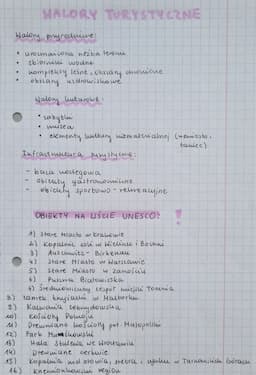 WALORY TURYSTYCZNE
Walory przyrodnicze:
• urozmaicona rzeźba terenu
• zbiorniki wodne
• kompleksy leśne, obszary chronione
• obszary uzdrowiskowe
Walory kulturowe:
• zabytki
• muzea
• elementy kultury niematerialnej (rzemiosło,
taniec)
Infrastruktura turystyczna:
- baza noclegowa
- obiekty gastronomiczne
- obiekty sportowo-rekreacyjne
OBIEKTY NA LIŚCIE UNESCO: !
1) Stare Miasto w Krakowie
2) Kopalnie soli w Wieliczce i Bochni
3) Auschwitz-Birkenau
4) Stare Miasto w Warszawie
5) Stare Miasto w Zamościu
6) Puszcza Białowieska
7) Średniowieczny zespół miejski Torunia
8) Zamek krzyżacki w Malborku
9) Kalwaria Zebrzydowska
10) Kościoły Pokoju
11) Drewniane kościoły poł. Małopolski
12) Park Mużakowski
13) Hala Stulecia we Wrocławiu
14) Drewniane cerkwie
15) Kopalnia rud ołowiu, srebra i cynku w Tarnowskich Górach
16) Krzemionkowski region